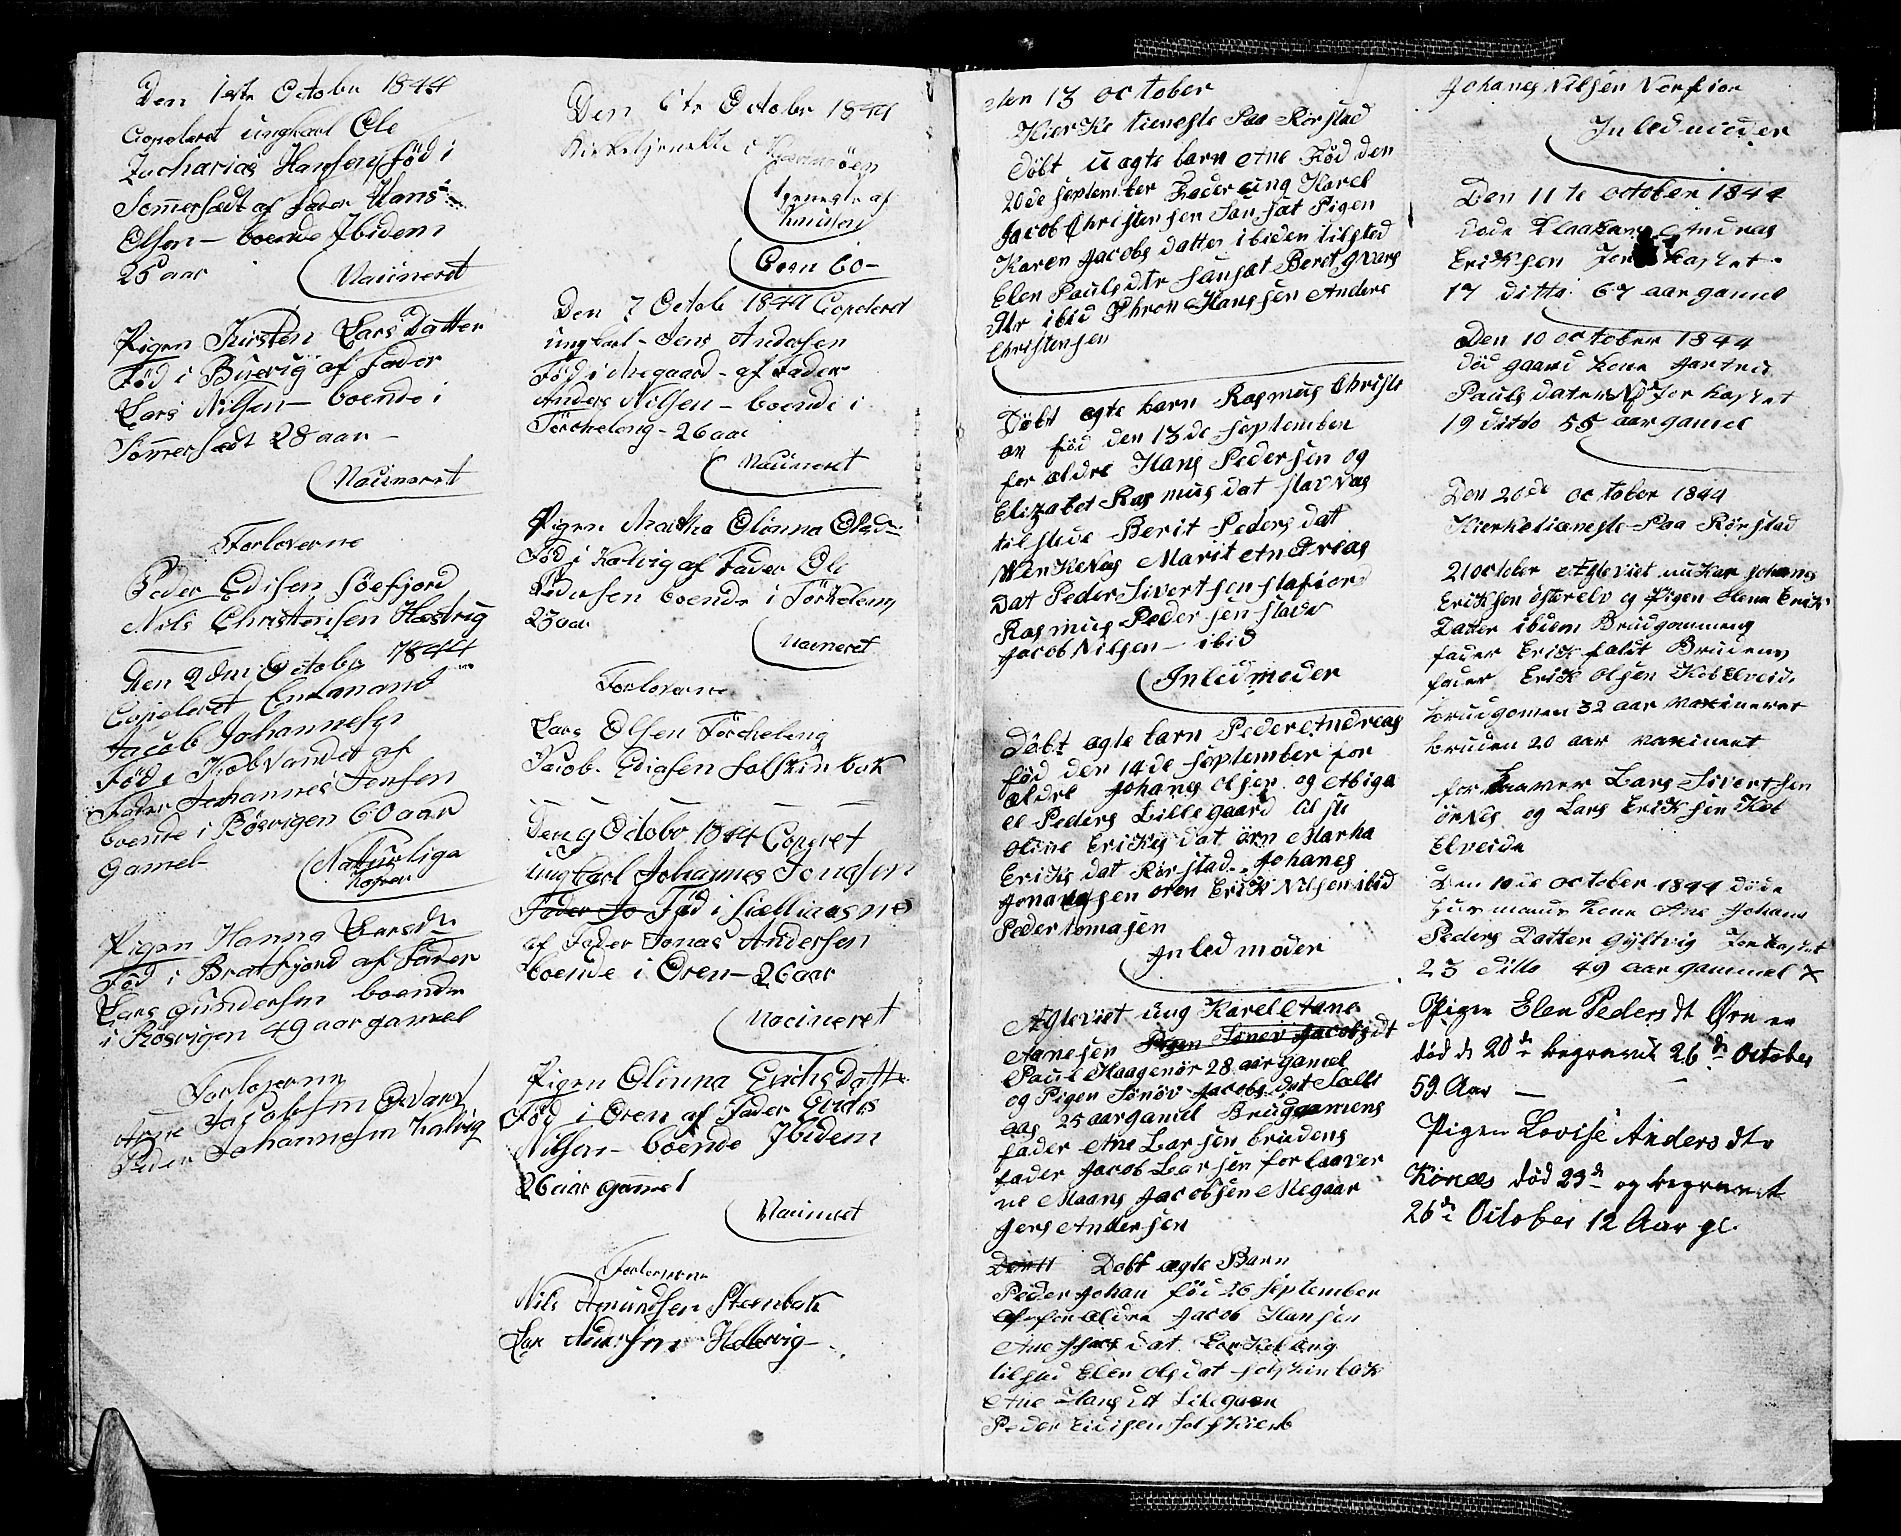 Den 1ste October 1844
Copoleret ungkarl Ole
Zacharias Hansen, Föd i
Sommersædt af Fader Hans
Olsen – boende Ibidem
26 aar
Vacineret
Pigen Kirsten Lars Datter
Föd i Buevig af Fader
Lars Nilsen – boende i
Sommersædt 28 aar –
Vacineret
Forloverne
Peder Edisen Söefjord
Nils Christensen Hæstvig
Den 2den October 1844
Copoleret Enkemand
Jacob Johannesen
Föd i Kobvandet af
Fader Johannes Jensen
boende i Bösvigen 60 aar
Gamel
Naturliga
Kopper
Pigen Hanna Larsdtr
Föd i Bratfjord af Fader
Lars Gundersen boende
i Rösvigen 49 aar gamel
Forloverne
Arne Jacobsen
Peder Johannesen Kalvig
Den 6te October 1844
Kirketjeneste i
af
Knudsen
Den 7 Octob 1844 Copoleret
ungkarl – Jens Andersen
Föd i Megaard – af Fader
Anders Nilsen – boende i
Törcheleng – 26 aar
Vacineret
Pigen Martha Olinna Olsd
Föd i Kalvig af Fader Ole
Pedersen boende i Törkeleng
23 aar
Vacineret
Forloverne
Lars Olsen Törcheleng
Jacob Ediasen Solskinbak
Den 9 October 1844 Copuleret
ungkarl Johannes Jonassen
Fader Jo Föd i
af Fader Jonas Andersen
boende i Oren – 26 aar
Vacineret
Pigen Olinna Erichs Datter
Föd i Oren af Fader Erichs
Nilsen – boende Ibidem
26 aar gamel
Vacineret
Forloverne
Nils Amundsen Steenbak
Lars Andersen Hellervig –
den 13 october
Kierke tieneste Paa Rörstad
döbt uagte barn Ane Föd den
20de september Fader ung Karel
Jacob Christensen Sausæt Pigen
Karen Jacobs datter ibiden tilsted
Elen Pauls dtr Sausæt Beret
dtr ibid Hanssen Anders
Christensen
Döbt agte barn Rasmus Christi
an föd den 13de september
for ældre Hans Pedersen og
Elizabet Rasmus dat slavvas
tilstede Berit Peders dat
Wenkevas Marit Andreas
Dat Peder Sivertsen slafiord
Rasmus Pedersen slavv
Jacob Nilsen – ibid
Inled moder
Döbt agte barn Peder Andreas
föd den 14de september for
ældre Johans Olsen og Abiga
el Peders Lillegaard tilste
Oline Ericks dat örn Marha
Ericks dat Rörstad Johanes
Jonassen oren Erick Nilsen ibid
Peder tomasen
Inled moder
Agteviet ung Karel Ane
Aanesen Pigen Sönev Jacobsdt
Paul Haagenör 28 aar gamel
og Pigen Sönöv Jacobs dat
25 aar gamel Brudgamens
fader Ane Larsen brudens
fader Jacob Larsen forlaaver
ne Maans Jacobsen Megaar
Jens Andersen
Döbt agte Barn
Peder Johan föd 26 september
forældre Jacob Hansen
Ane dat Torkelæng
tilstad Elen Ols dat solskinbak
Ane Hans dt Lilegaar
Peder Eidisen
Johanes Nilsen Norfior
Inled moder
Den 11te october 1844
döde Andreas
Ericksen Jordkastet
17 ditto 67 aar gamel
Den 10 october 1844
död gaard kone
Pauls dater Jor kastet
19 ditto 55 aar gamel
Den 20de october 1844
Kierketieneste Paa Rörstad
21 october Agteviet unkar Johans
Ericksen österelv og Pigen Elena Erick
Datter ibiden Brudgommens
fader Erick Brudens
fader Erick Olsen Kobelveid
brudgomen 32 aar vaxineret
bruden 20 aar vaxineret
forlaaver Lars Sivertsen
örnes og Lars Ericksen Kob
Elveide
Den 10de october 1844 döde
huusmands kone Ane Johane
Peders Datter Gyltvig Jorkastet
23 ditto 49 aar gammel ×
Pigen Elen Peders dt Ørn er
död d 20de begravet 26de October
59 Aar —
Pigen Lovise Anders dtr
Könæs död 23de og begravet
26de October 12 Aar gl.